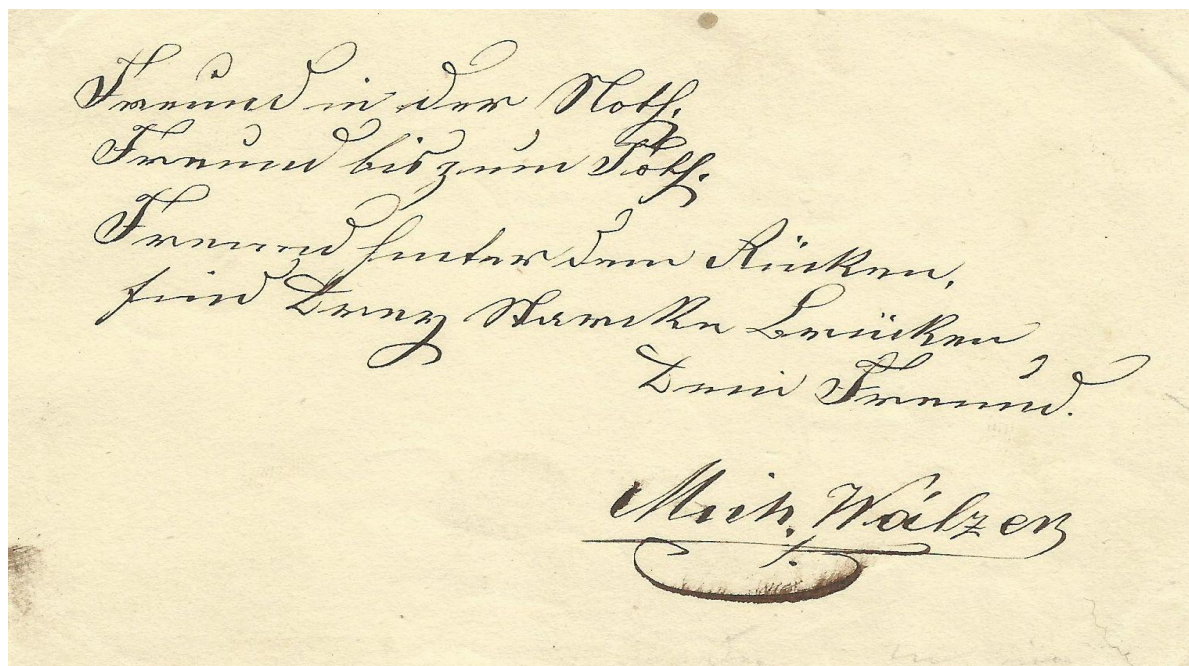 Freund in der Noth,
Freund bis zum Toth,
Freund hinter dem Rücken,
sind Drey Starcke Brücken
Dein Freund.
Mich. Wälzer